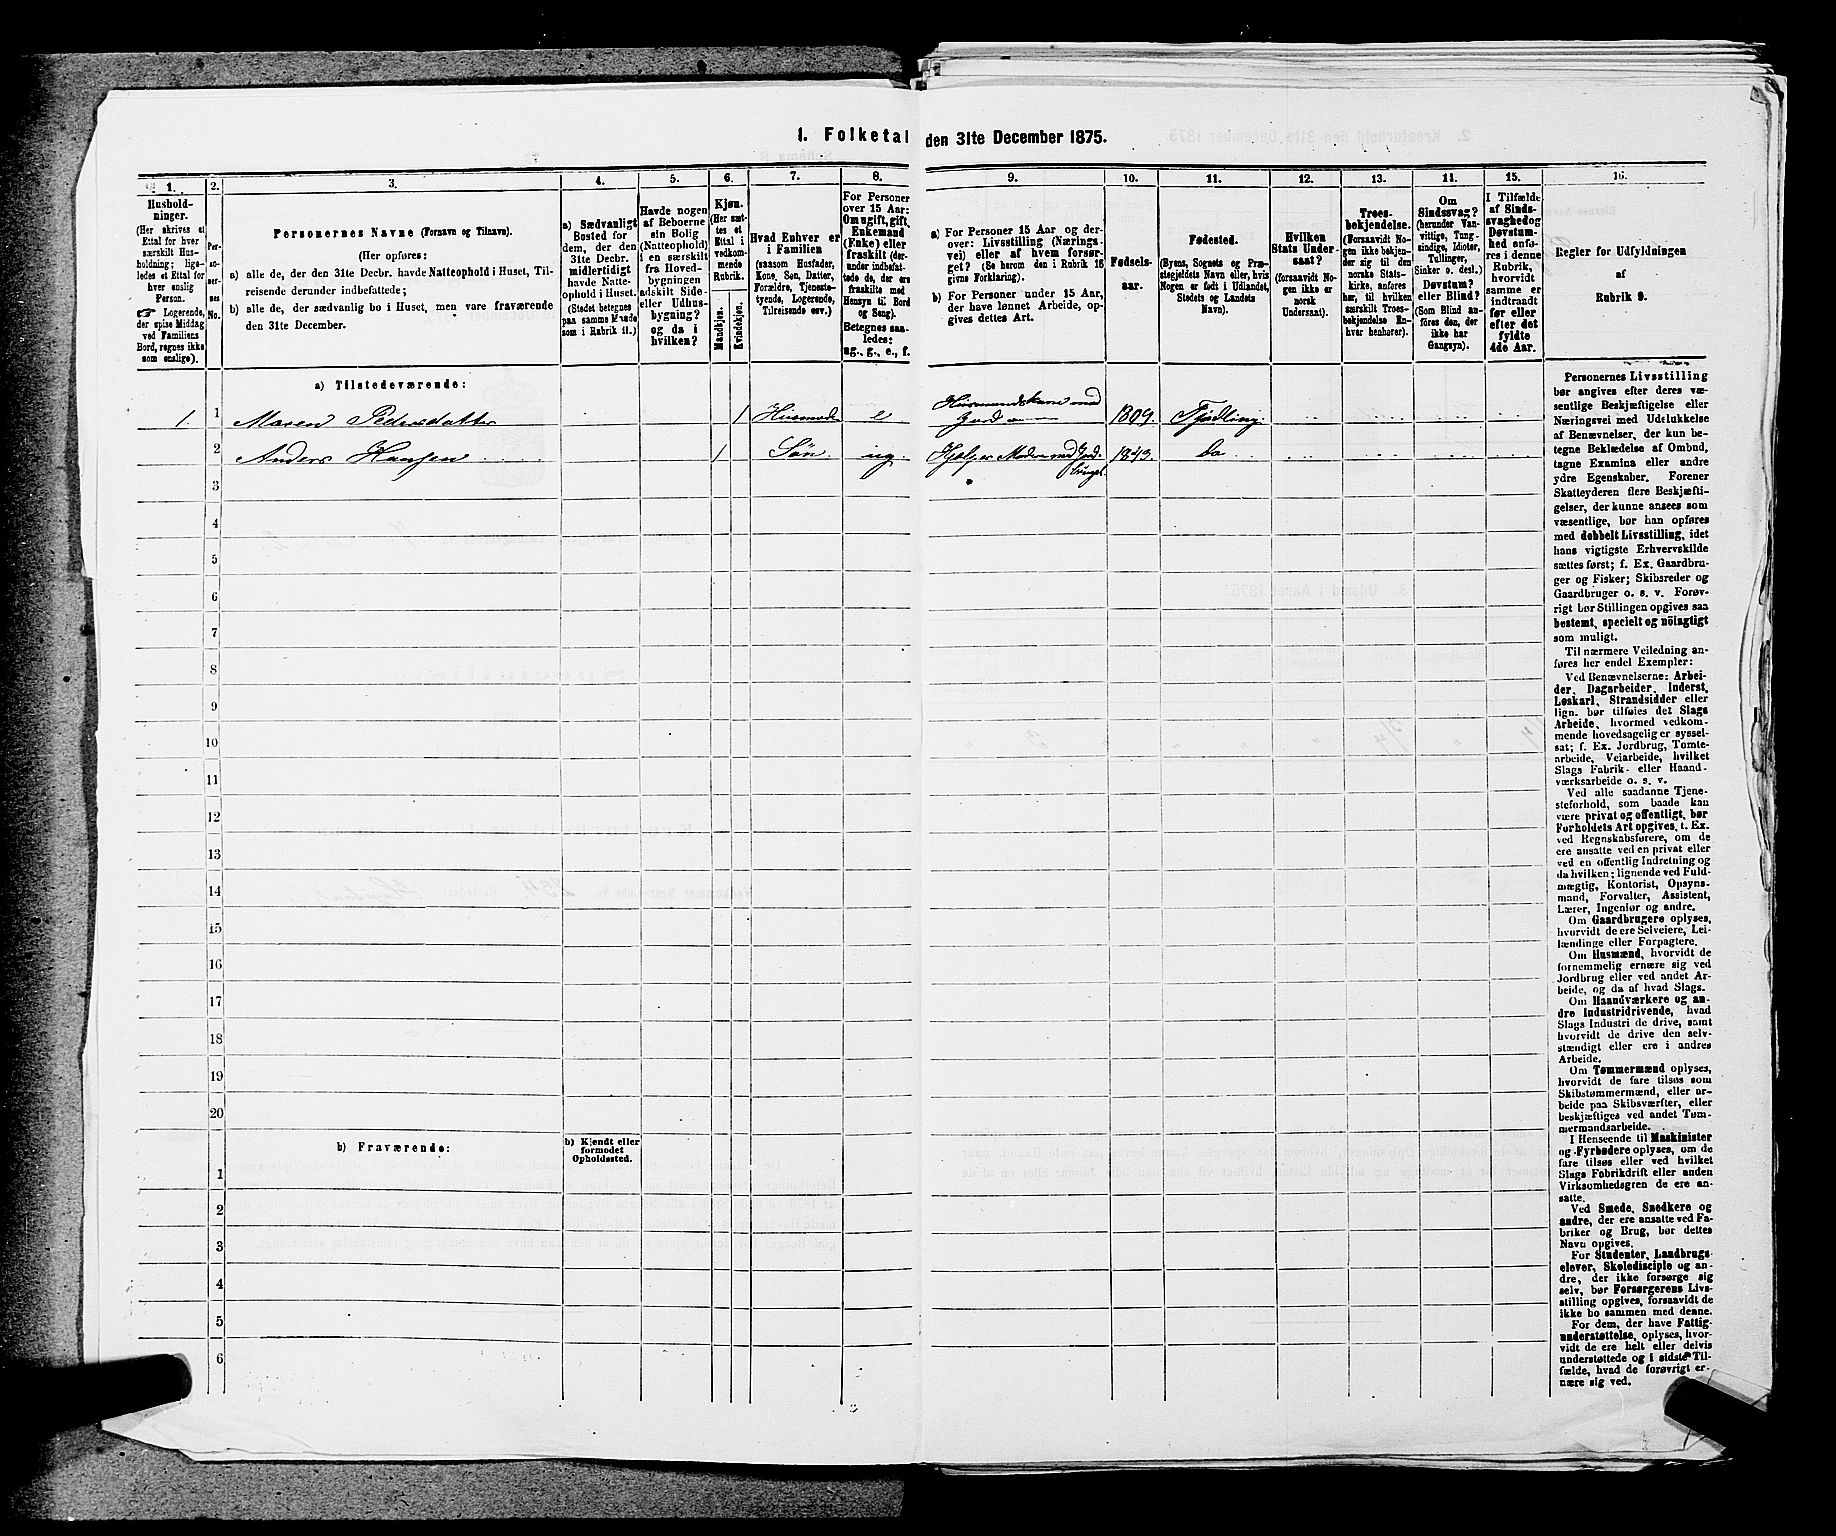 1. Folketal den 31te December 1875.
1. 2. 3. 4. 5. 6. 7. 8. 9. 10. 11. 12. 13. 11. 15. 16.
Husholdninger.
(Her skrives et
Ettal for hver
særskilt Husholdning;
ligeledes et Ettal for
hver enslig
Person.
Logerende,
der spise Middag
ved Familiens
Bord, regnes ikke
som enslige).
Personernes No.
Personernes Navne (Fornavn og Tilnavn).
(Her opføres:
a) alle de, der den 31te Decbr. havde Natteophold i Huset, Tilreisende
derunder indbefattede;
b) alle de, der sædvanlig bo i Huset, men vare fraværende
den 31te December.
a) Sædvanligt
Bosted for
dem, der den
31te Decbr.
midlertidigt
havde Natteophold
i Huset.
(Stedet betegnes
paa samme Maade
som i Rubrik 11.)
Havde nogen
af Beboerne
sin Bolig
(Natteophold)
i en særskilt
fra Hovedbygningen
adskilt Side-
eller Udhusbygning?
og da i
hvilken?
Kjøn.
(Her sættes
et
Ettal i
vedkommende
Rubrik.
Mandkjøn.
Kvindekjøn.
Hvad Enhver er
i Familien
(saasom Husfader,
Kone, Søn, Datter,
Forældre, Tjenestetyende,
Logerende,
Tilreisende osv.)
For Personer
over 15 Aar:
Om ugift, gift,
Enkemand
(Enke) eller
fraskilt (derunder
indbefattede
de, der ere
fraskilte med
Hensyn til Bord
og Seng).
Betegnes saaledes:
ug., g., e., f.
a) For Personer 15 Aar og derover:
Livsstilling (Næringsvei)
eller af hvem forsørget?
(Se herom den i Rubrik 16
givne Forklaring).
b) For Personer under 15 Aar,
der have lønnet Arbeide, opgives
dettes Art.
Fødselsaar.
Fødested.
(Byens, Sognets og Præstegjeldets
Navn eller, hvis
Nogen er født i Udlandet,
Stedets og Landets
Navn).
Hvilken
Stats Undersaat?
(forsaavidt Nogen
ikke er
norsk
Undersaat).
Troesbekjendelse.
(Forsaavidt Nogen
ikke bekjender
sig til den
norske Statskirke,
anføres
her, til hvilken
særskilt Troesbekjendelse
Enhver
henhører).
Om
Sindssvag?
(herunder Vanvittige,
Tungsindige,
Idioter,
Tullinger,
Sinker o. desl.)
Døvstum?
eller Blind?
(Som Blind anføres
den, der
ikke har
Gangsyn).
I Tilfælde
af Sindssvaghed
og
Døvstumhed
anføres
i denne
Rubrik,
hvorvidt
samme er
indtraadt
før eller
efter det
fyldte
4de Aar.
Regler for Udfyldningen
af
Rubrik 9.
a) Tilstedeværende:
1. 1 Maren Pedersdatter 1 Husmoder e Husmandskone med Jord 1809. Fjødling
2 Anders Hansen 1 Søn ug. Hjælper Moder med Jordbruget 1843. do
3
4
5
6
7
8
9
10
11
12
13
14
15
16
17
18
19
20
b) Fraværende:
b) Kjendt eller
formodet
Opholdssted.
1
2
3
4
5
6
Personernes Livsstilling
bør angives efter deres væsentlige
Beskjæftigelse eller
Næringsvei med Udelukkelse
af Benævnelser, der kun betegne
Beklædelse af Ombud,
tagne Examina eller andre
ydre Egenskaber. Forener
Skatteyderen flere Beskjæftigelser,
der kunne ansees som
væsentlige, bør han opføres
med dobbelt Livsstilling, idet
hans vigtigste Erhvervskilde
sættes først; f. Ex. Gaardbruger
og Fisker; Skibsreder og
Gaardbruger o. s. v. Forøvrigt
bør Stillingen opgives saa
bestemt, specielt og nöiagtigt
som muligt.
Til nærmere Veiledning anføres
her endel Exempler:
Ved Benævnelserne: Arbeider,
Dagarbeider, Inderst,
Løskarl, Strandsidder eller
lign. bør tilføies det Slags
Arbeide, hvormed vedkommende
hovedsagelig er sysselsat;
f. Ex. Jordbrug, Tomtearbeide,
Veiarbeide, hvilket
Slags Fabrik- eller Haandværksarbeide
o. s. v.
Ved alle saadanne Tjenesteforhold,
som baade kan
være privat og offentligt, bør
Forholdets Art opgives, t. Ex.
ved Regnskabsførere, om de
ere ansatte ved en privat eller
ved en offentlig Indretning og
da hvilken; lignende ved Fuldmægtig,
Kontorist, Opsynsmand,
Forvalter, Assistent,
Lærer, Ingeniør og andre.
Om Gaardbrugere oplyses,
hvorvidt de ere Selveiere, Leilændinge
eller Forpagtere.
Om Husmænd, hvorvidt de
fornemmelig ernære sig ved
Jordbrug eller ved andet Arbeide,
og da af hvad Slags.
Om Haandværkere og andre
Industridrivende, hvad
Slags Industri de drive, samt
hvorvidt de drive den selvstændigt
eller ere i andres
Arbeide.
Om Tømmermænd oplyses,
hvorvidt de fare tilsøs som
Skibstømmermænd, eller arbeide
paa Skibsværfter, eller
beskjæftiges ved andet Tømmermandsarbeide.
I Henseende til Maskinister
og Fyrbødere oplyses, om de
fare tilsøs eller ved hvilket
Slags Fabrikdrift eller anden
Virksomhedsgren de ere ansatte.
Ved Smede, Snedkere og
andre, der ere ansatte ved Fabriker
og Brug, bør dettes
Navn opgives.
For Studenter, Landbrugselever,
Skoledisciple og andre,
der ikke forsørge sig
selv, bør Forsørgerens Livsstilling
opgives, forsaavidt de
ikke bo sammen med denne.
For dem, der have Fattigunderstøttelse,
oplyses, hvorvidt
de ere helt eller delvis
understøttede og i sidste Tilfælde,
hvad de forøvrigt ernære
sig ved.